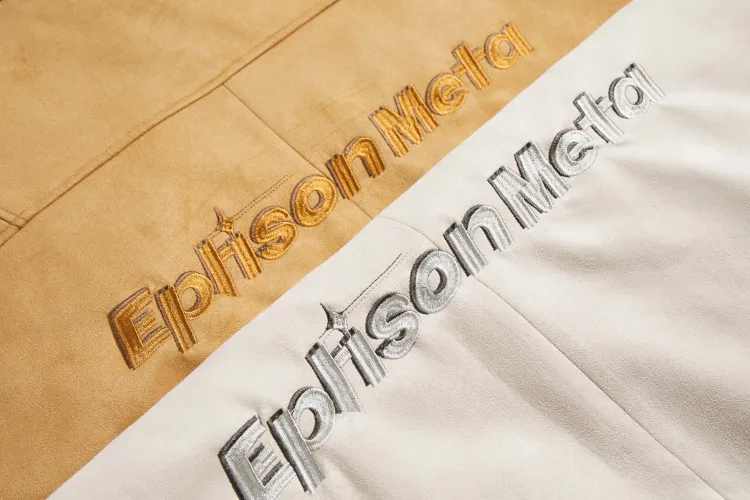 Eplison Meta
Eplison Meta